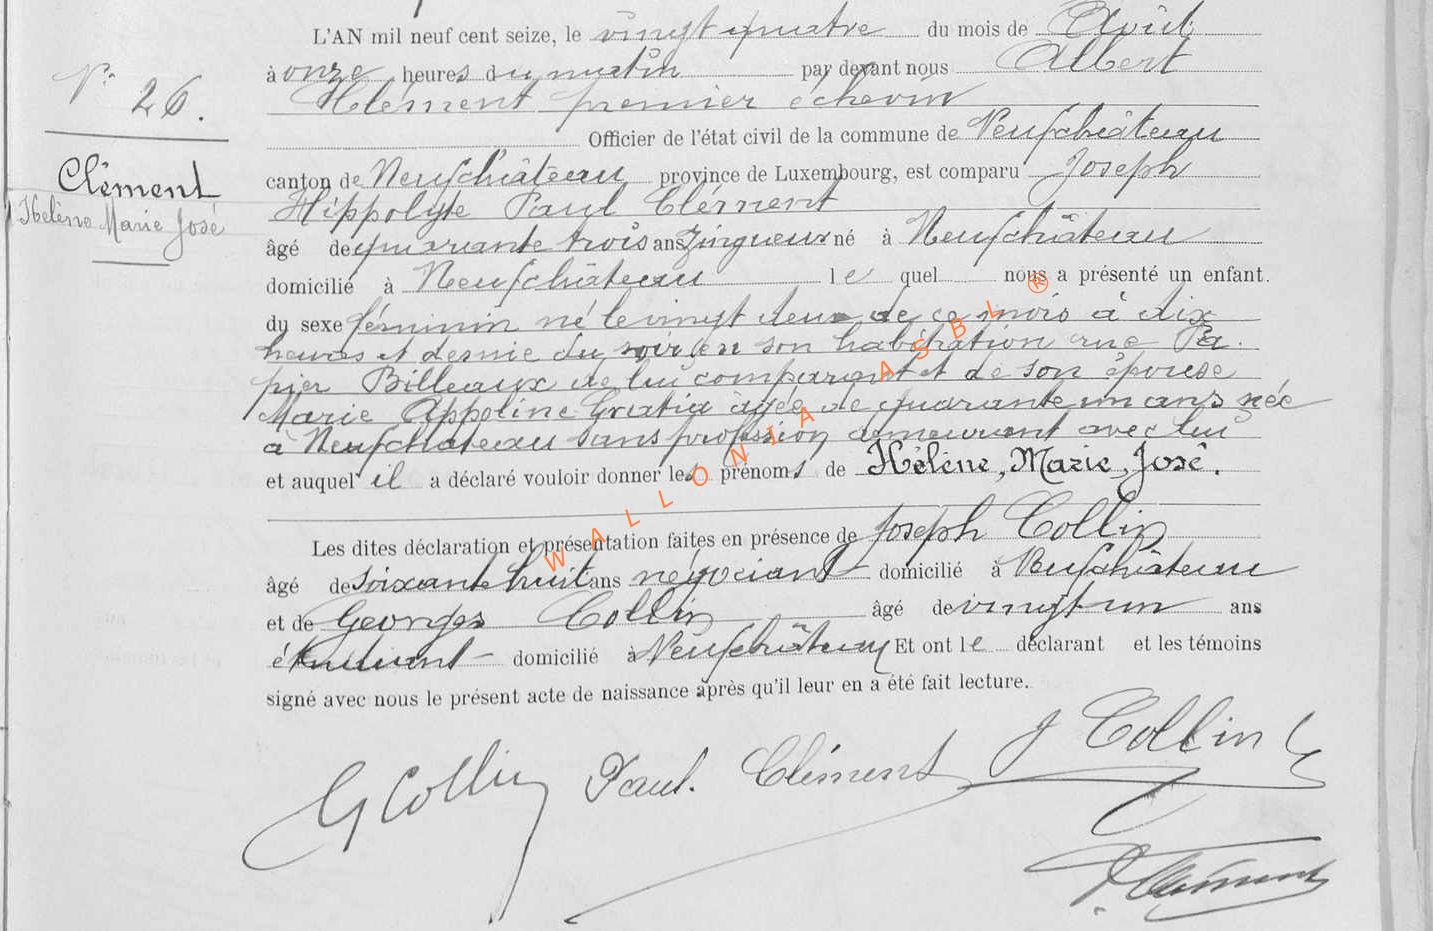 L'AN mil neuf cent seize, le vingt quatre du mois de Avril
à onze heures du matin par devant nous Albert
N° 26.
Clément premier échevin
Officier de l'état civil de la commune de Neufchâteau
Clément
canton de Neufchâteau province de Luxembourg, est comparu Joseph
Hélène Marie José
Hippolyte Paul Clément
âgé de quarante trois ans Zingueur né à Neufchâteau
domicilié à Neufchâteau le quel nous a présenté un enfant.
du sexe féminin né le vingt deux de ce mois à dix
heures et demie du soir en son habitation rue Pa-
pier Billeaux de lui comparant et de son épouse
Marie Appoline Gratia âgée de quarante un ans née
à Neufchâteau sans profession demeurant avec lui
et auquel il a déclaré vouloir donner les prénoms de Hélène, Marie, José.
Les dites déclaration et présentation faites en présence de Joseph Collin
âgé de soixante huit ans négociant domicilié à Neufchâteau
et de Georges Collin âgé de vingt un ans
étudiant domicilié à Neufchâteau Et ont le déclarant et les témoins
signé avec nous le présent acte de naissance après qu'il leur en a été fait lecture.
G Collin Paul. Clément J Collin
Clément
WALLONIA ASBL ®